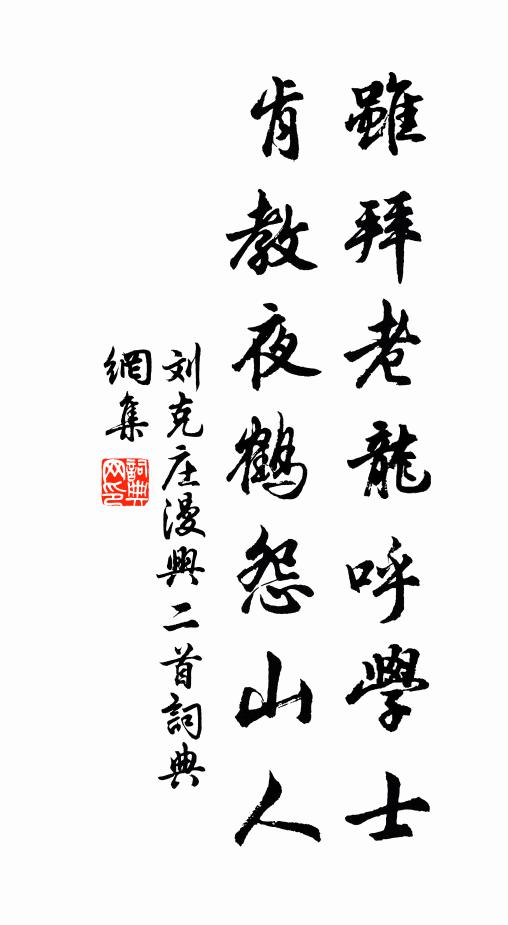 雖拜老龍呼學士
肯教夜鶴怨山人
刘克庄漫興二首詞典
網集
詞典網印